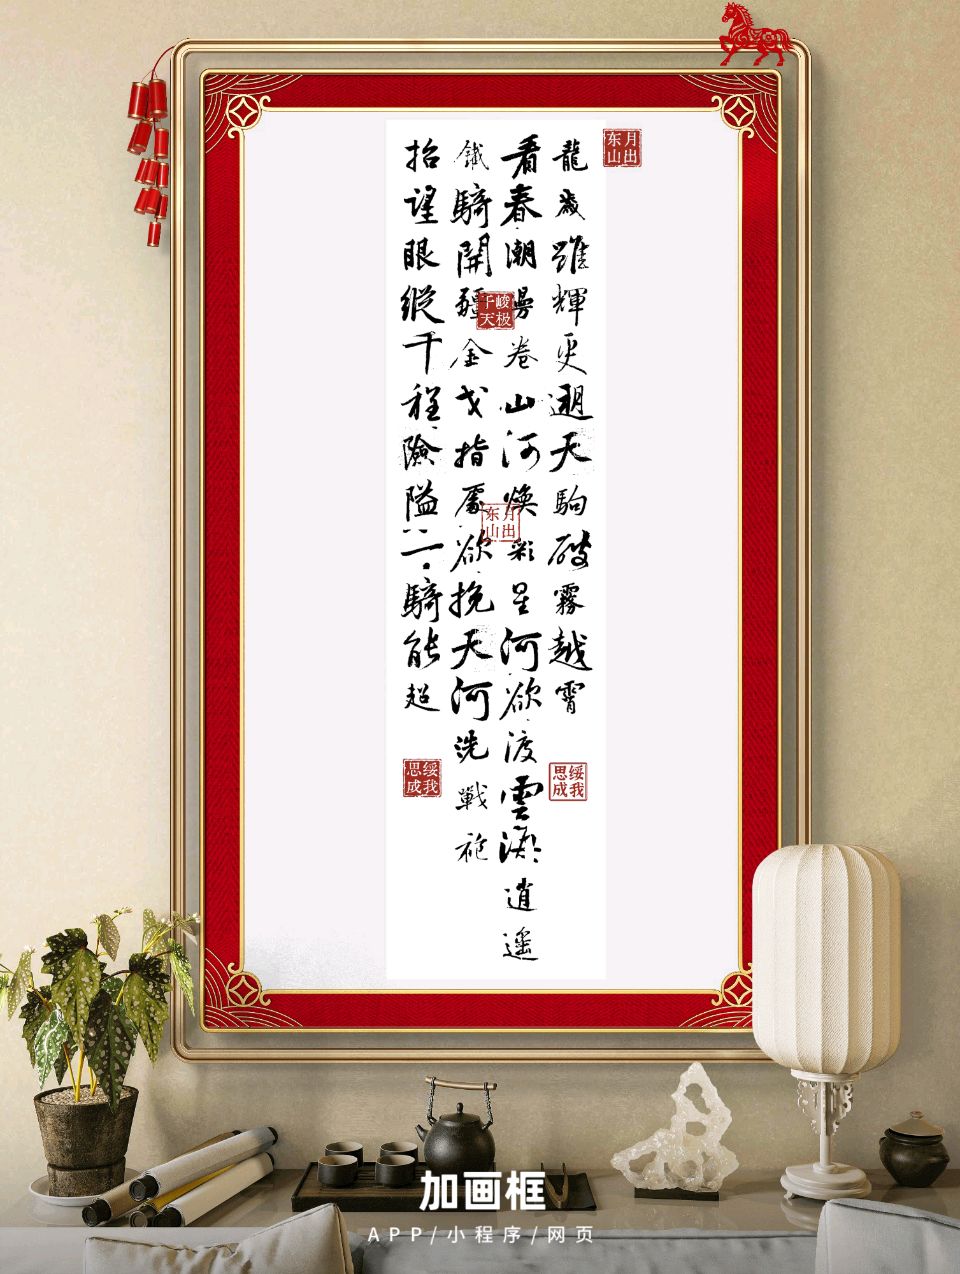 月出
东山
龍歲雖輝更天駒破霧越霄
绥我
思成
看春潮曼卷山河煥彩星河欲渡雲逍遥
峻极
于天
月出
东山
鐵騎開疆金戈指處欲挽天河洗戰袍
抬望眼縱千程險隘一騎能超
绥我
思成
加画框
APP/小程序/网页